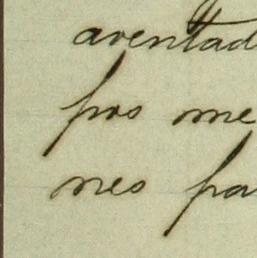 aventad
pos me
nes pa